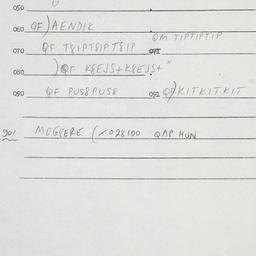 050
060 QF) AENDIK
QM TIPTIPTIP
070 QF T8IPT8IPT8IP 071
080 )QF K8EJS+K8EJS+"
090 QF PUS8PUS8 091 QP)KITKITKIT
901 MOG8ERE (/028100 QAP HUN